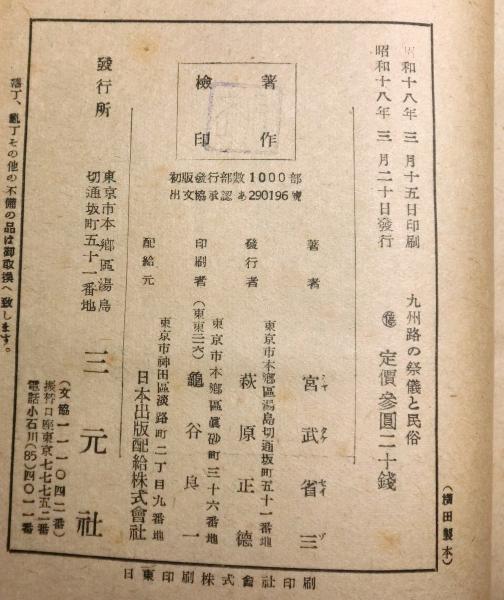 昭和十八年三月十五日印刷
昭和十八年三月二十日發行
九州路の祭儀と民俗
定價參圓二十錢
著作
檢印
初版發行部數1000部
出文協承認あ290196號
著者 宮武省三
ミヤタケセイゾ
東京市本鄕區湯島切通坂町五十一番地
發行者 萩原正德
東京市本鄕區眞砂町三十六番地
印刷者(東東二六) 龜谷良一
東京市神田區淡路町二丁目九番地
配給元 日本出版配給株式會社
發行所
東京市本鄕區湯島
切通坂町五十一番地
三元社
(文協一一一〇四二番)
振替口座東京七七七五二番
電話小石川(85)四〇一一番
落丁、亂丁その他の不備の品は御取換へ致します。
(横田製本)
日東印刷株式會社印刷